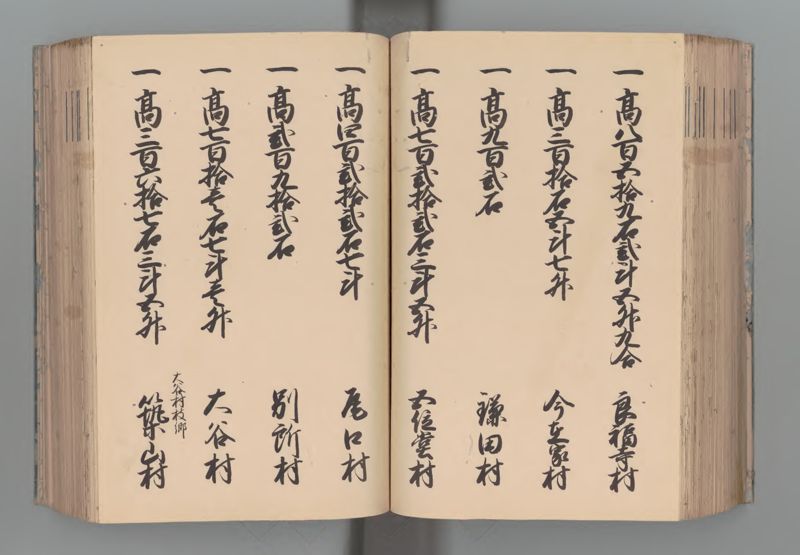 一 高八百五拾九石弐斗五升九合 良福寺村
一 高三百拾石五斗七升 今在家村
一 高九百弐石 鎌田村
一 高七百弐拾弐石三斗五升 五位堂村
一 高四百弐拾弐石七斗 尾口村
一 高弐百九拾弐石 別所村
一 高七百拾壱石七斗壱升 大谷村
一 高三百六拾七石三斗五升 大谷村枝郷 築山村